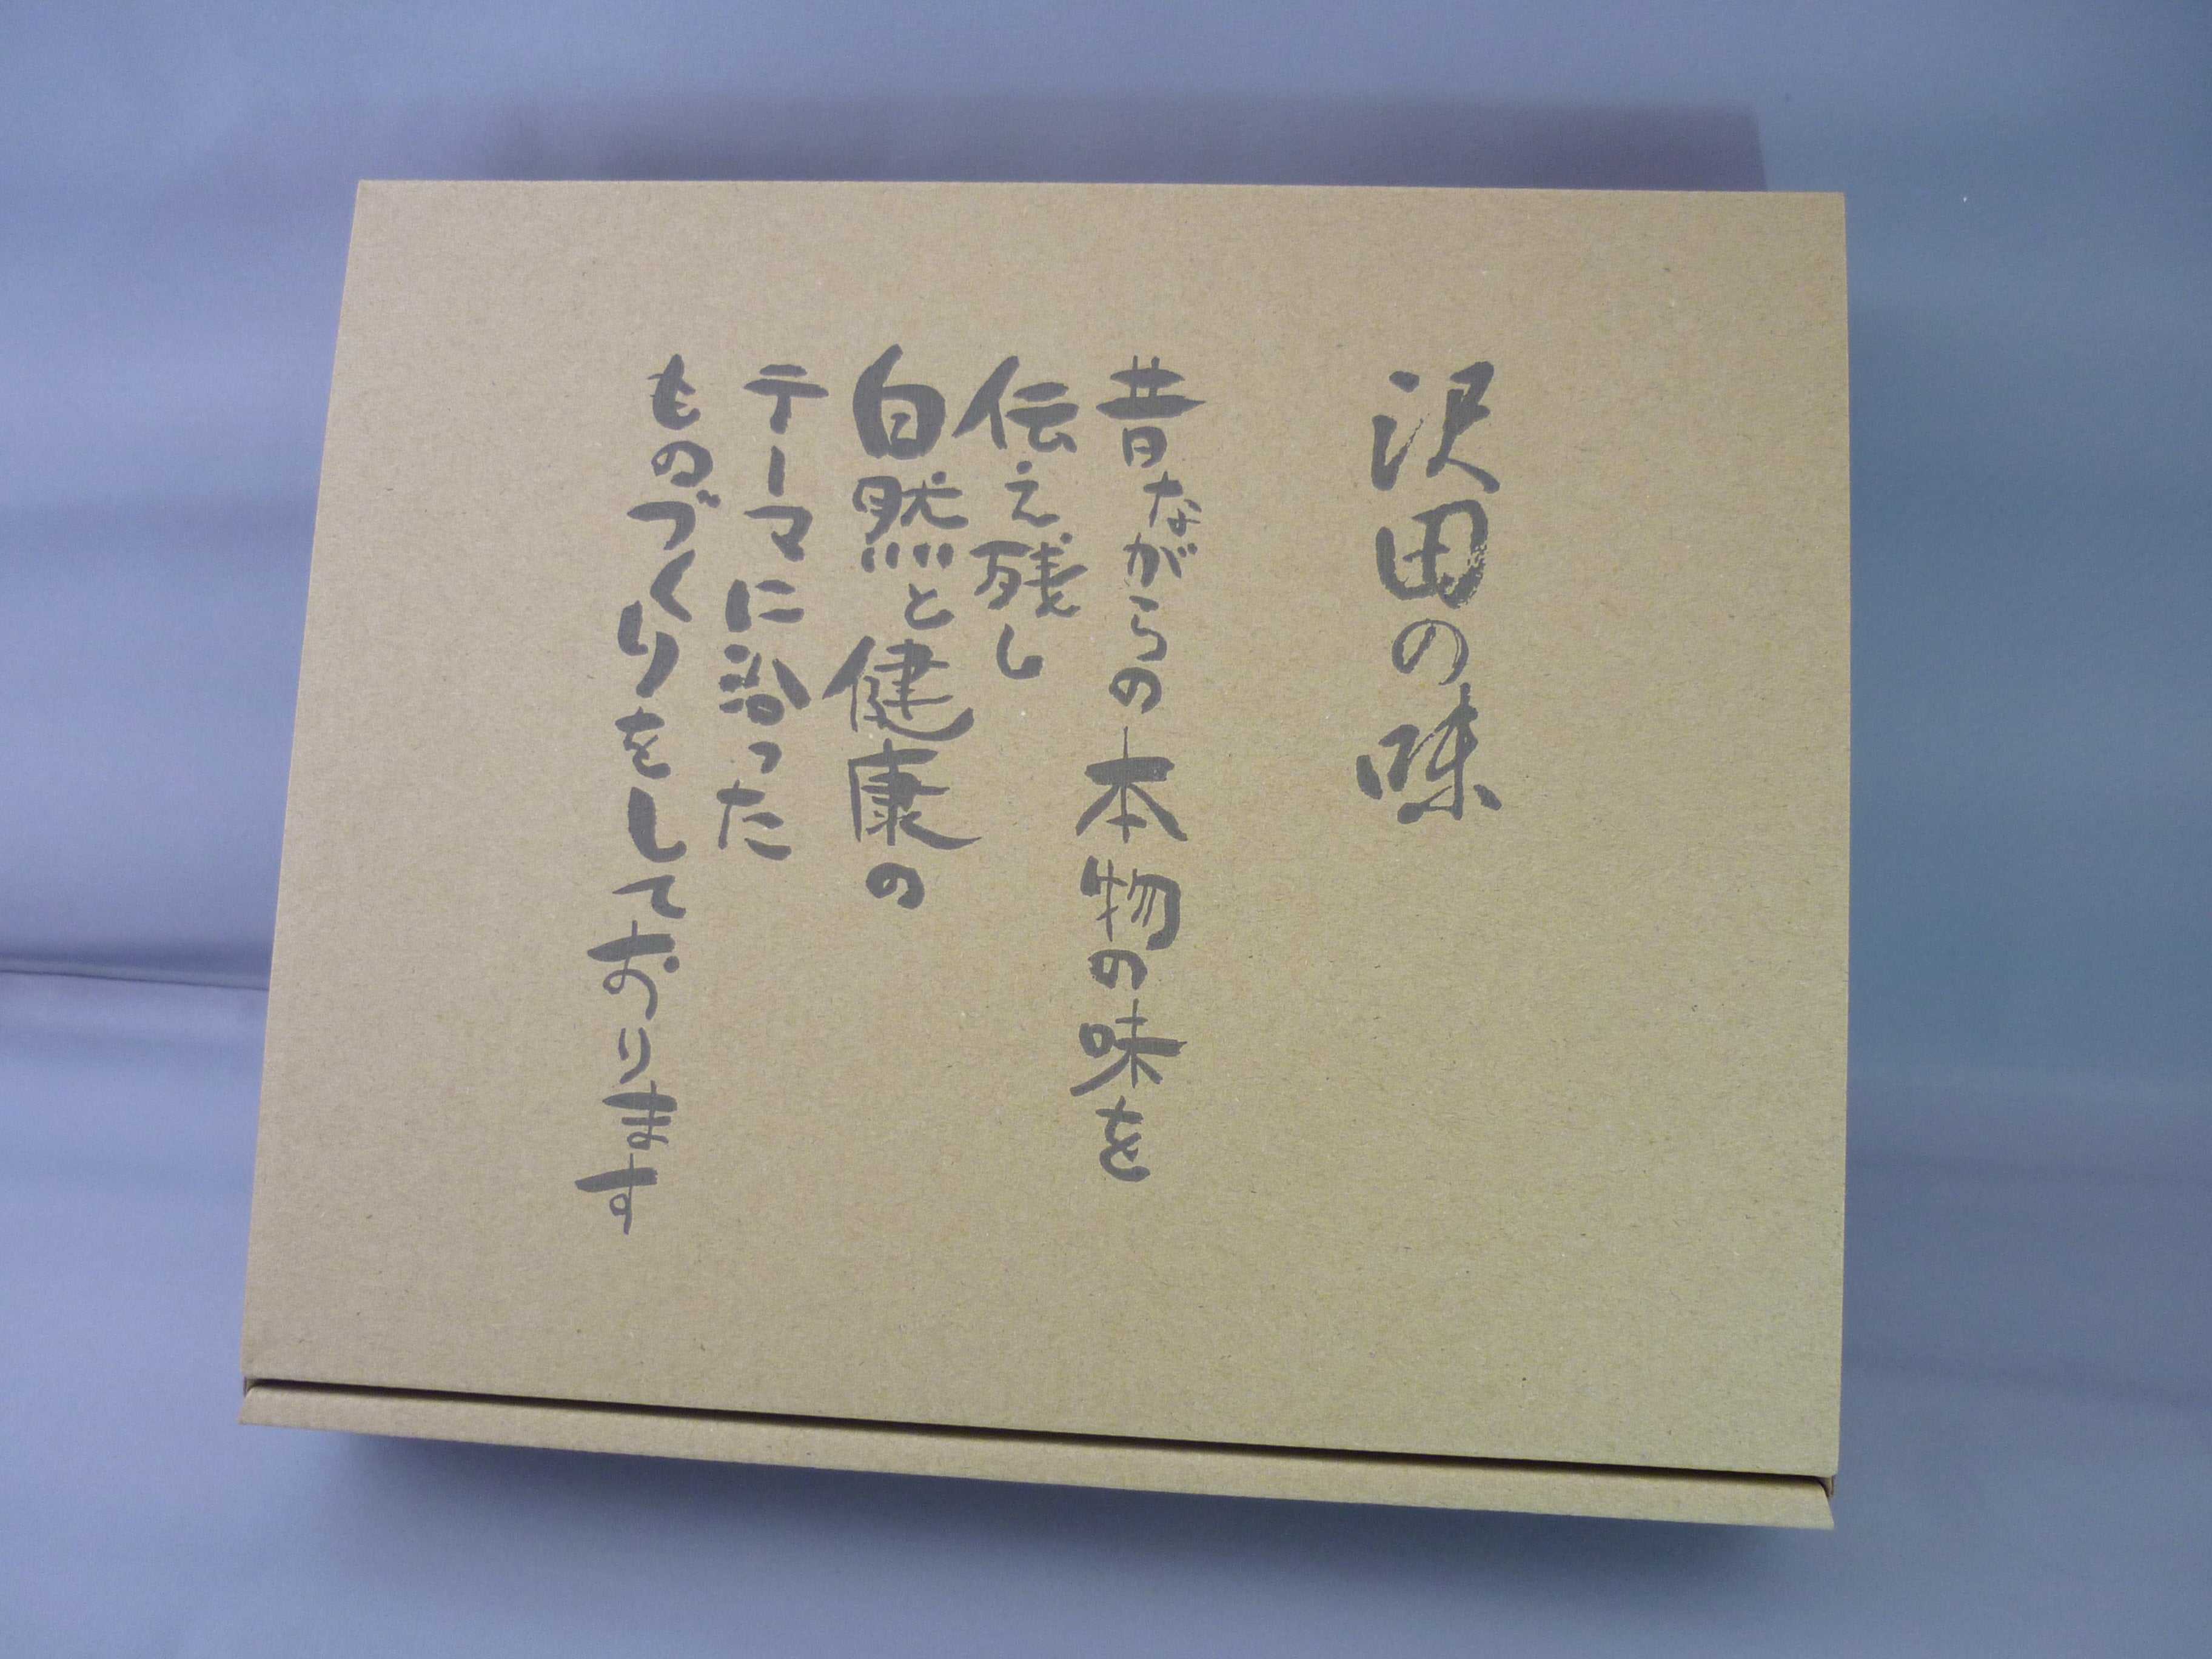 沢田の味
昔ながらの本物の味を
伝え残し
自然と健康の
テーマに沿った
ものづくりをしております